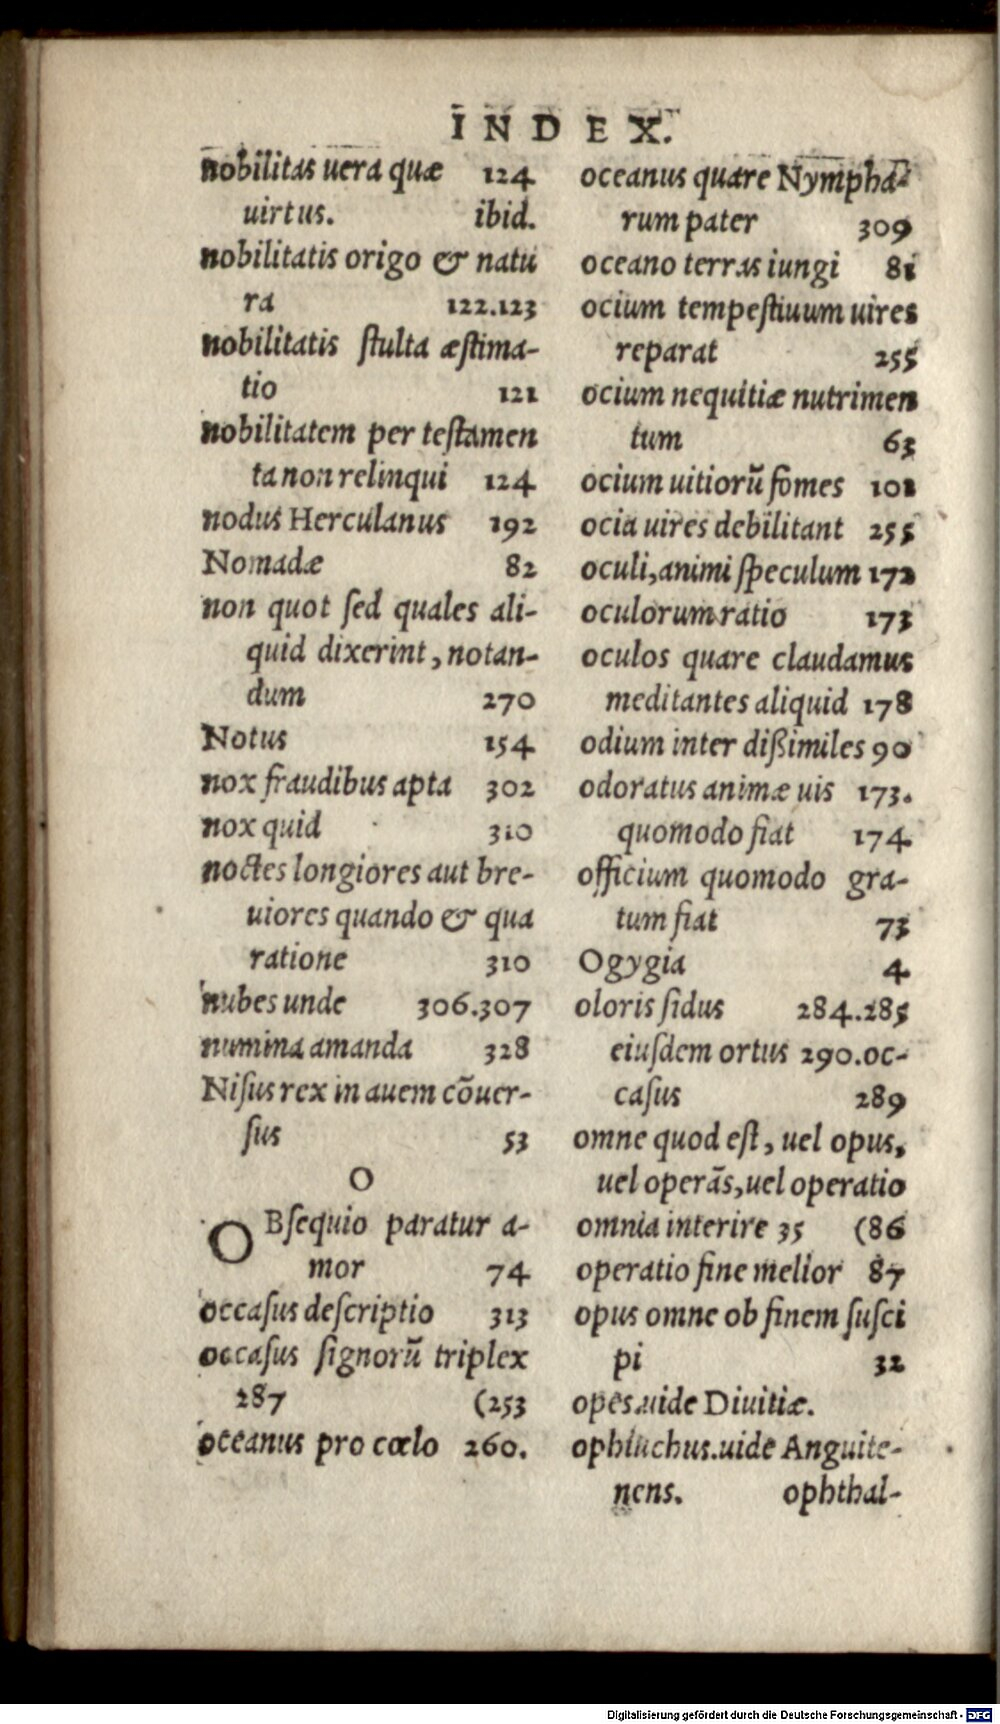 INDEX.
nobilitas uera quæ 124
uirtus. ibid.
nobilitatis origo & natu
ra 122.123
nobilitatis ſtulta æſtima-
tio 121
nobilitatem per teſtamen
ta non relinqui 124
nodus Herculanus 192
Nomadæ 82
non quot ſed quales ali-
quid dixerint, notan-
dum 270
Notus 154
nox fraudibus apta 302
nox quid 310
noctes longiores aut bre-
uiores quando & qua
ratione 310
nubes unde 306.307
numina amanda 328
Niſus rex in auem cōuer-
ſus 53
O
OBſequio paratur a-
mor 74
occaſus deſcriptio 313
occaſus ſignorū triplex
287 (253
oceanus pro cœlo 260.
oceanus quare Nympha-
rum pater 309
oceano terras iungi 81
ocium tempeſtiuum uires
reparat 255
ocium nequitiæ nutrimen
tum 63
ocium uitiorū fomes 101
ocia uires debilitant 255
oculi, animi ſpeculum 172
oculorum ratio 173
oculos quare claudamus
meditantes aliquid 178
odium inter dißimiles 90
odoratus animæ uis 173.
quomodo fiat 174
officium quomodo gra-
tum fiat 73
Ogygia 4
oloris ſidus 284.285
eiuſdem ortus 290.oc-
caſus 289
omne quod eſt, uel opus,
uel operās, uel operatio
omnia interire 35 (86
operatio fine melior 87
opus omne ob finem ſuſci
pi 32
opes.uide Diuitiæ.
ophiuchus.uide Anguite-
nens. ophthal-
Digitalisierung gefördert durch die Deutsche Forschungsgemeinschaft - DFG